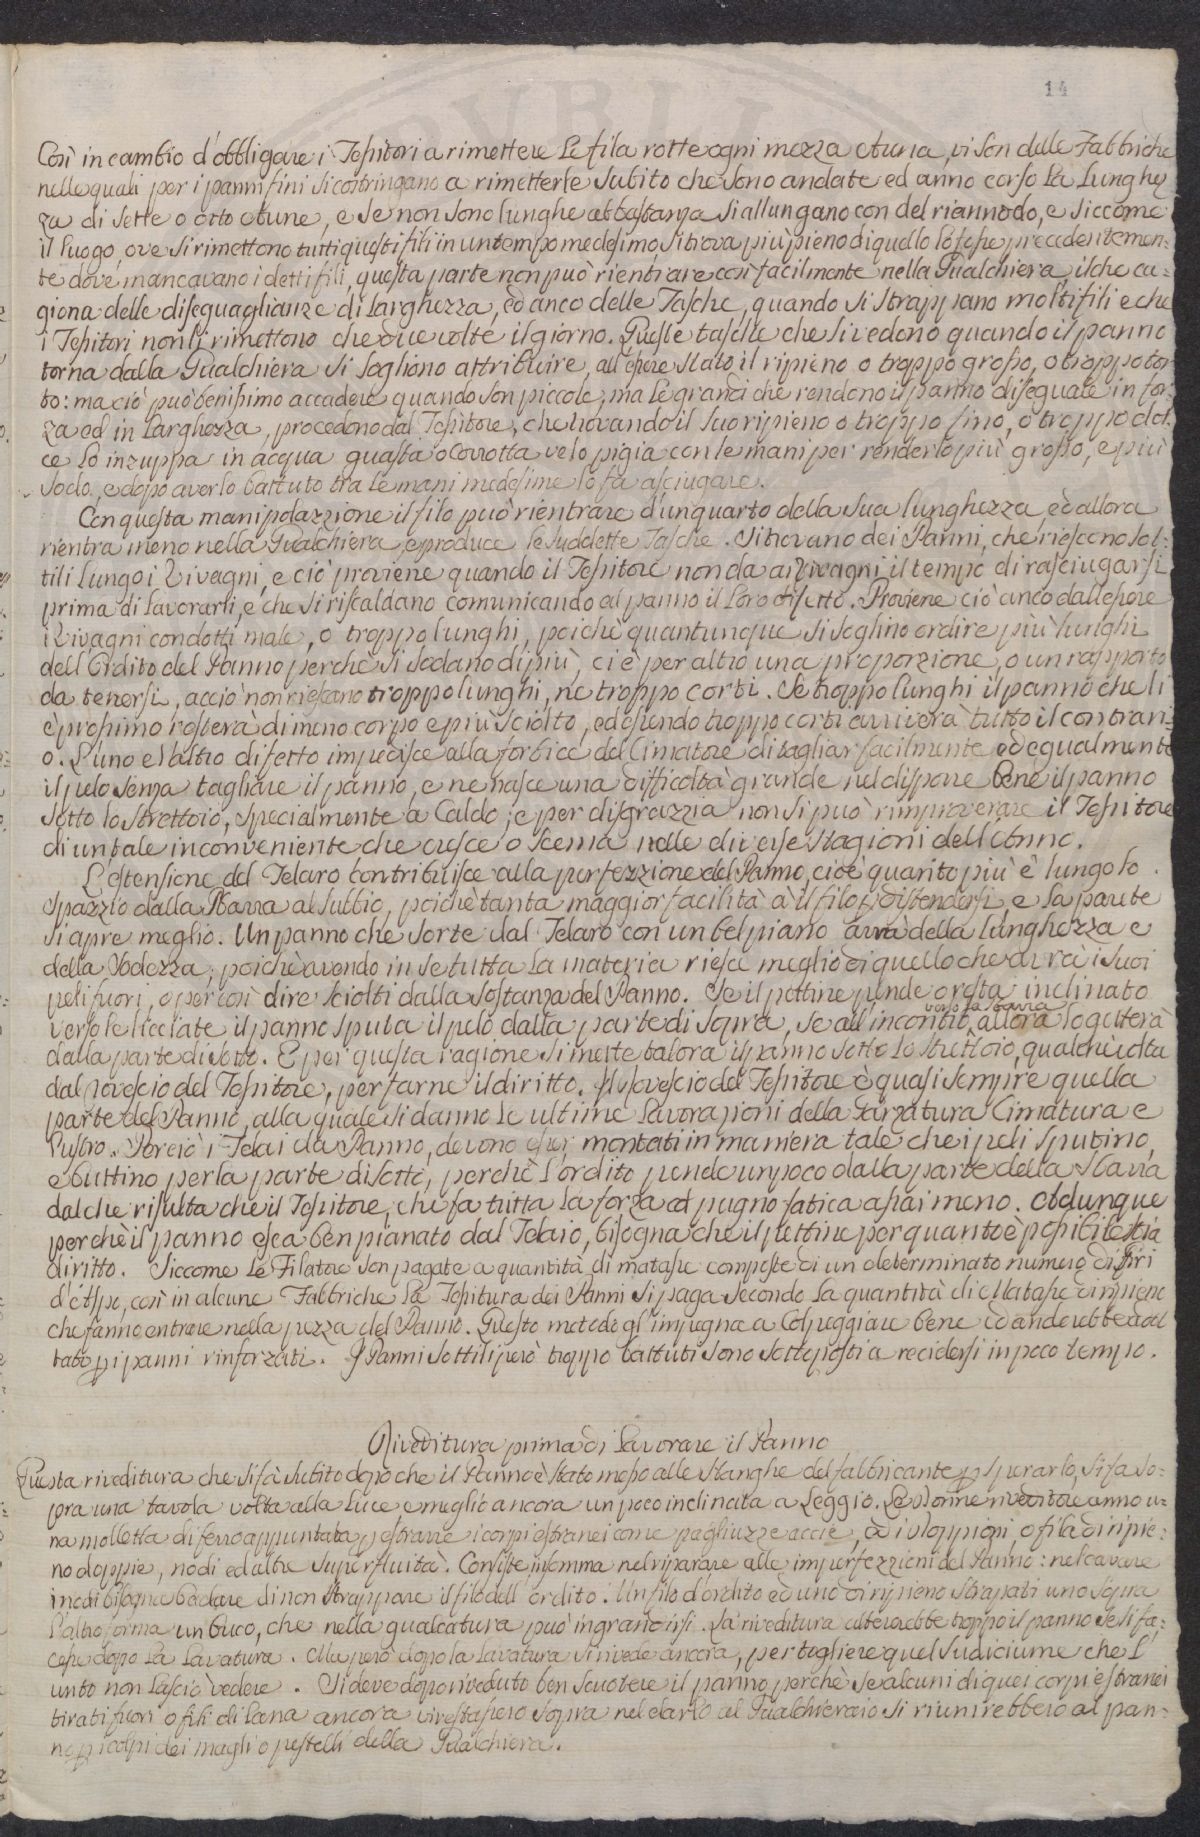 14
Così in cambio d'obbligare i Tessitori a rimettere le fila rotte ogni mezza Auna, vi son delle Fabbriche
nelle quali per i panni fini si costringano a rimetterle subito che sono andate ed anno corso la Lunghez
za di sette o otto Aune, e se non sono lunghe abbastanza si allungano con del riannodo, e siccome
il luogo, ove si rimettono tutti questi fili in un tempo medesimo, si trova più pieno di quello lo fosse precedentemen=
te dove mancavano i detti fili, questa parte non può rientrare così facilmente nella Gualchiera, il che ca=
giona delle diseguaglianze di Larghezza, ed anco delle Tasche, quando si strappano molti fili e che
i Tessitori non li rimettono che due volte il giorno. Queste tasche che si vedono quando il panno
torna dalla Gualchiera si sogliono attribuire, all'essere stato il ripieno o troppo grosso, o troppo tor
to: ma ciò può benissimo accadere quando son piccole, ma le grandi che rendono il panno diseguale in for
za ed in Larghezza, procedono dal Tessitore, che trovando il suo ripieno o troppo fino, o troppo dol
ce lo inzuppa in acqua guasta o Corrotta ve lo pigia con le mani per renderlo più grosso, e più
sodo, e dopo averlo battuto tra le mani medesime lo fa asciugare.
Con questa manipolazzione il filo può rientrare d'un quarto della sua lunghezza, ed allora
rientra meno nella Gualchiera, e produce le suddette Tasche. Si trovano dei Panni, che riescono sot=
tili lungo i Vivagni, e ciò proviene quando il Tessitore non da ai Vivagni il tempo di rasciugarsi
prima di lavorarli, e che si riscaldano comunicando al panno il loro difetto. Proviene ciò anco dall'essere
i Vivagni condotti male, o troppo lunghi, poichè quantunque si soglino ordire più lunghi
dell'Ordito del Panno perchè si sodano di più, ci è per altro una proporzione, o un rapporto
da tenersi, acciò non riescano troppo lunghi, ne troppo corti. Se troppo lunghi il panno che li
è prossimo resterà di meno corpo e più sciolto, ed essendo troppo corti avverrà tutto il contrari=
o. L'uno e l'altro difetto impedisce alla forbice del Cimatore di tagliar facilmente ed egualmente
il pelo senza tagliare il panno, e ne nasce una difficoltà grande nel disporre bene il panno
sotto lo strettoio, specialmente a Caldo; e per disgrazzia non si può rimproverare il Tessitore
di un tale inconveniente che cresce o scema nelle diverse stagioni dell'Anno.
L'estensione del Telaro contribuisce alla perfezzione del Panno, cioè quanto più è lungo lo
spazzio dalla Sbarra al Subbio, poichè tanta maggior facilità à il filo di distendersi e la parete
si apre meglio. Un panno che sorte dal Telaro con un bel piano avrà della Lunghezza e
della Sodezza, poichè avendo in se tutta la materia riesce meglio di quello che avrà i suoi
peli fuori, o per così dire sciolti dalla sostanza del Panno. Se il pettine pende o resta inclinato
verso le licciate il panno sputa il pelo dalla parte di sopra, se all'incontro verso la sbarra allora lo getterà
dalla parte di sotto. E per questa ragione si mette talora il panno sotto lo strettoio, qualche volta
dal rovescio del Tessitore, per farne il diritto. Il rovescio del Tessitore è quasi sempre quella
parte del Panno, alla quale si danno le ultime lavorazioni della Garzatura Cimatura e
Lustro. Perciò i Telai da Panno, devono esser montati in maniera tale che i peli sputino,
e buttino per la parte di sotto, perchè l'ordito pende un poco dalla parte della sbarra
dal che risulta che il Tessitore, che fa tutta la forza al pugno fatica assai meno. Adunque
perchè il panno esca ben pianato dal Telaio, bisogna che il pettine per quanto è possibile stia
diritto. Siccome le Filatore son pagate a quantità di matasse composte di un determinato numero di giri
d'Aspo, così in alcune Fabbriche la Tessitura dei Panni si paga secondo la quantità di Matasse di ripieno
che fanno entrare nella pezza del Panno. Questo metodo gl'impegna a Colpeggiare bene ed anderebbe adot
tato p i panni rinforzati. I Panni sottili però troppo battuti sono sottoposti a recidersi in poco tempo.
Riveditura prima di lavorare il Panno
Questa riveditura che si fà subito dopo che il Panno è stato messo alle stanghe del fabbricante p sperarlo, si fa so=
pra una tavola volta alla luce e meglio ancora un poco inclinata a Leggio. Le Donne riveditore anno u=
na molletta di ferro appuntata p estrarre i corpi estranei come pagliuzze accie, ed i sloppioni, o fila di ripie=
no doppie, nodi ed altre superfluità. Consiste insomma nel riparare alle imperfezzioni del Panno: nel cavare
i nodi bisogna badare di non strappare il filo dell'ordito. Un filo d'ordito ed uno di ripieno strapati uno sopra
l'altro forma un buco, che nella gualcatura può ingrandirsi. La riveditura altererebbe troppo il panno se si fa=
cesse dopo la Lavatura. Ma però dopo la Lavatura si rivede ancora, per togliere quel sudiciume che l'
unto non lasciò vedere. Si deve dopo riveduto ben scuotere il panno, perchè se alcuni di quei corpi estranei
tirati fuori o fili di lana ancora vi restassero sopra nel darlo al Gualchieraio si riunirebbero al pan=
no p i colpi dei magli o pestelli della Gualchiera.